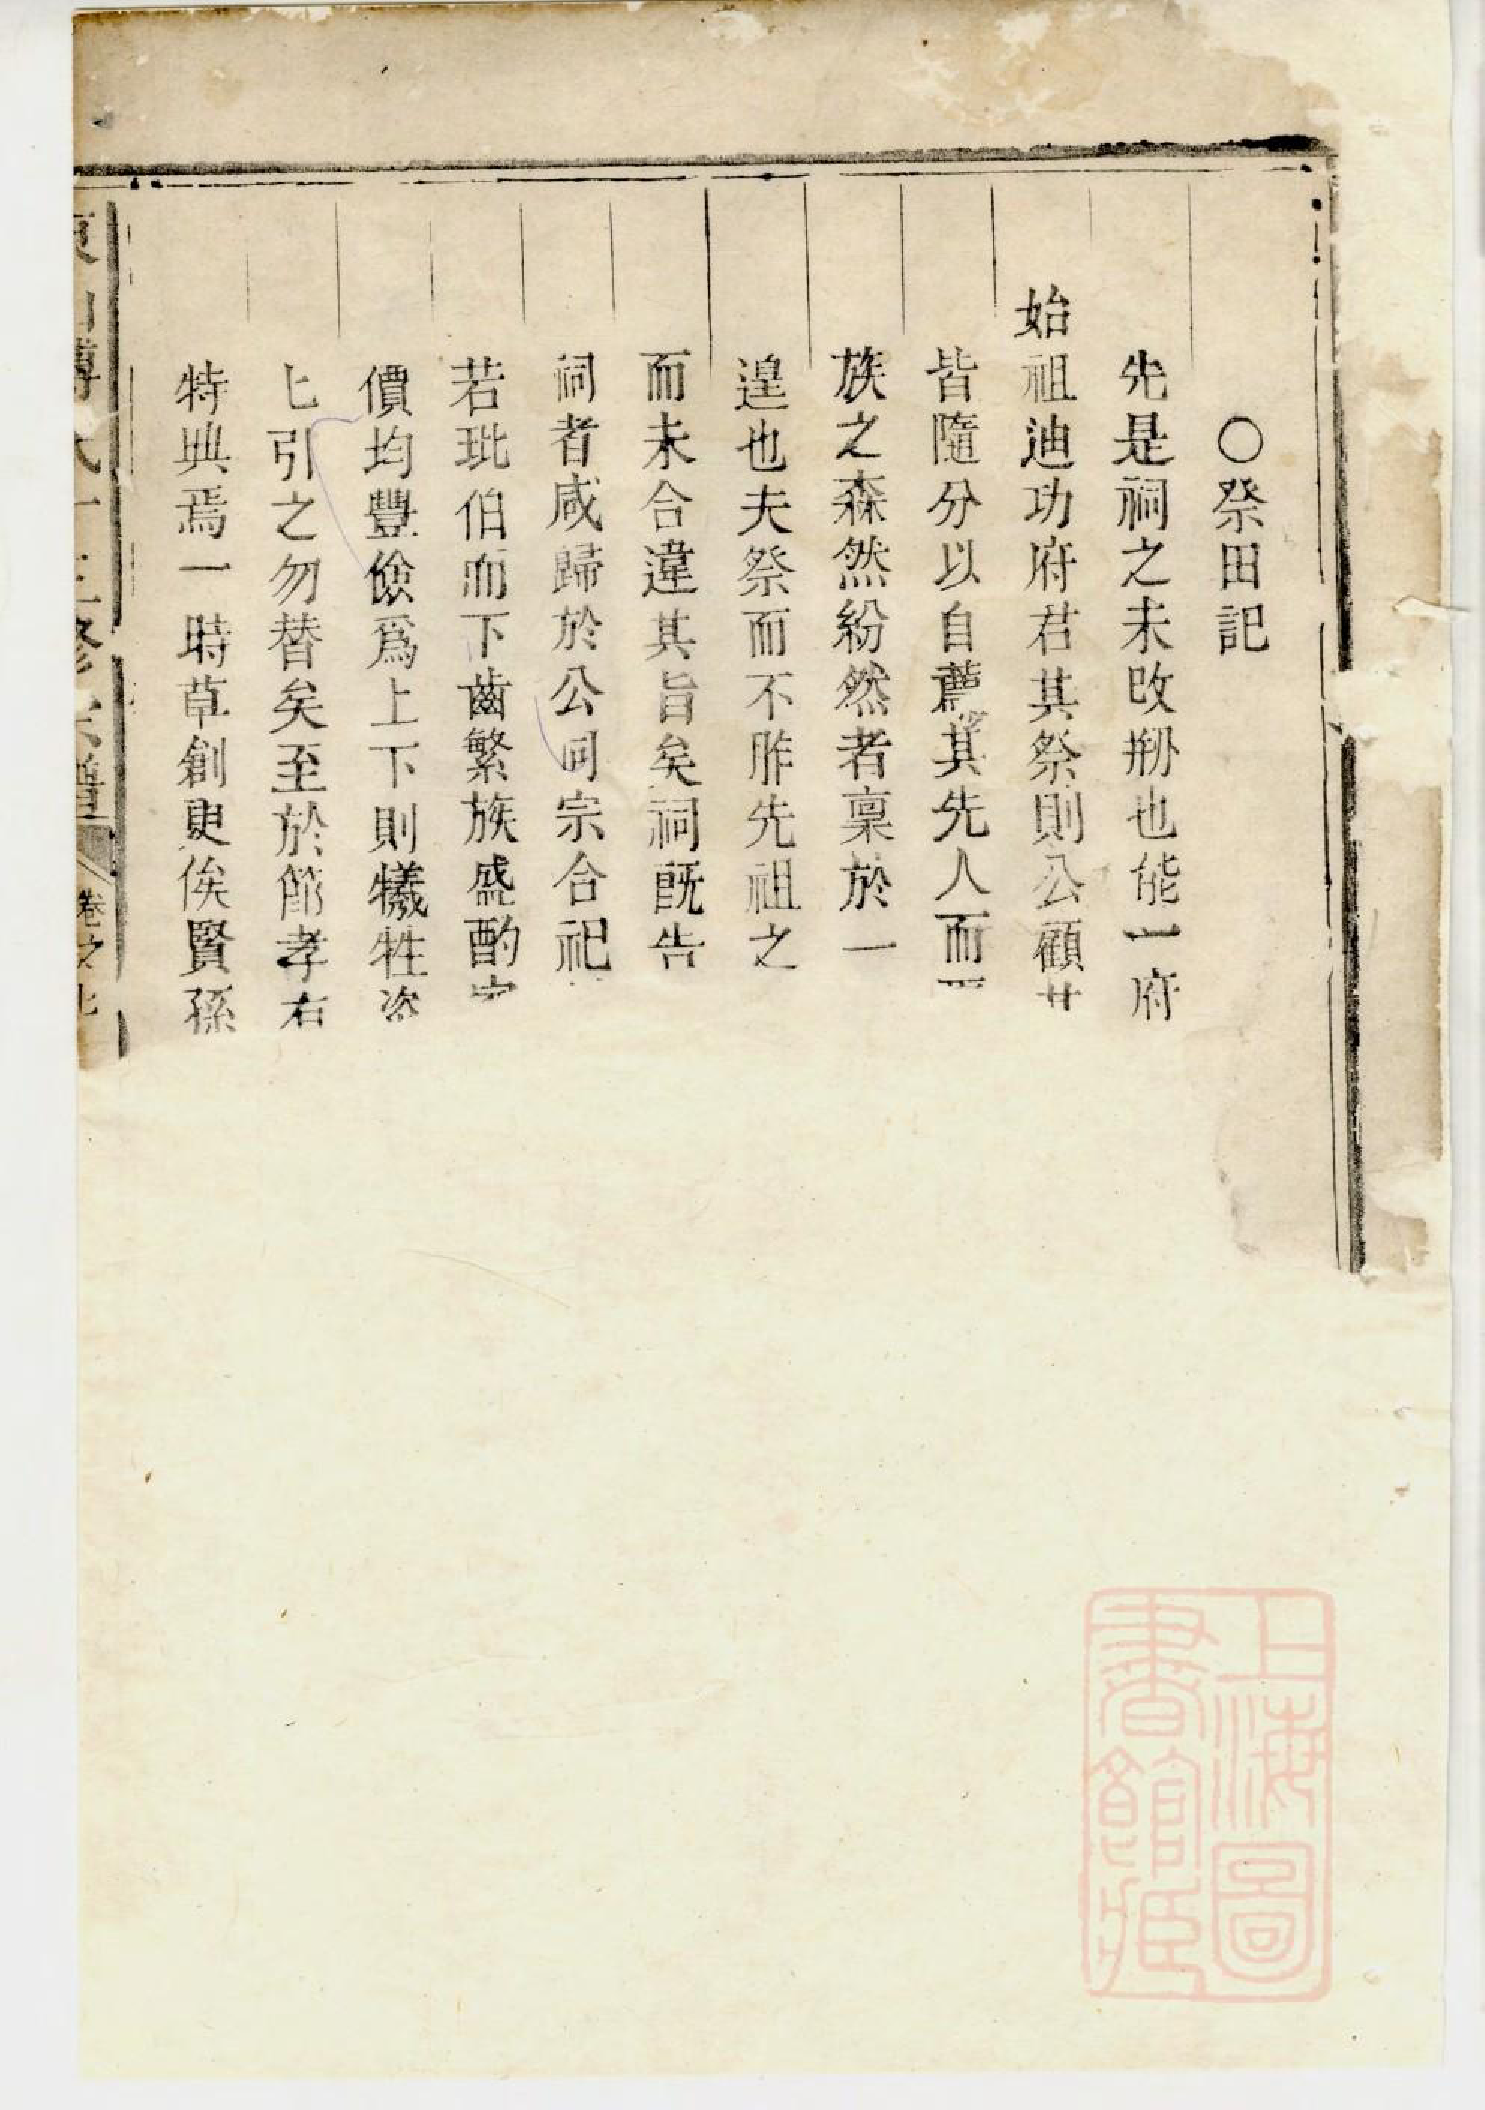 ○祭田記
先是祠之未改剙也能一府
始祖迪功府君其祭則公顧其
皆隨分以自薦其先人而
族之森然紛然者稟於一
遑也夫祭而不胙先祖之
而未合違其旨矣祠旣告
祠者咸歸於公同宗合祀
若玭伯而下齒繁族盛酌
價均豐儉爲上下則犧牲
引之勿替矣至於節孝
特典焉一時草創更俟賢孫
氏十三修宗譜
卷之七
上海圖書館藏